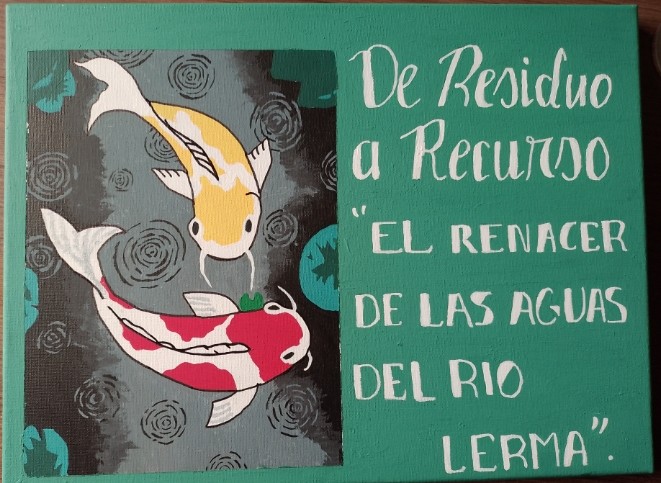 De Residuo
a Recurso
"EL RENACER
DE LAS AGUAS
DEL RIO
LERMA".